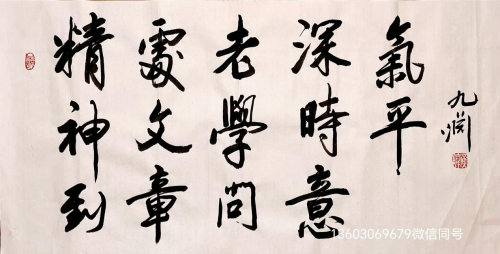 精神到
處文章
老學問
深時意
氣平
九
13603069679微信同号